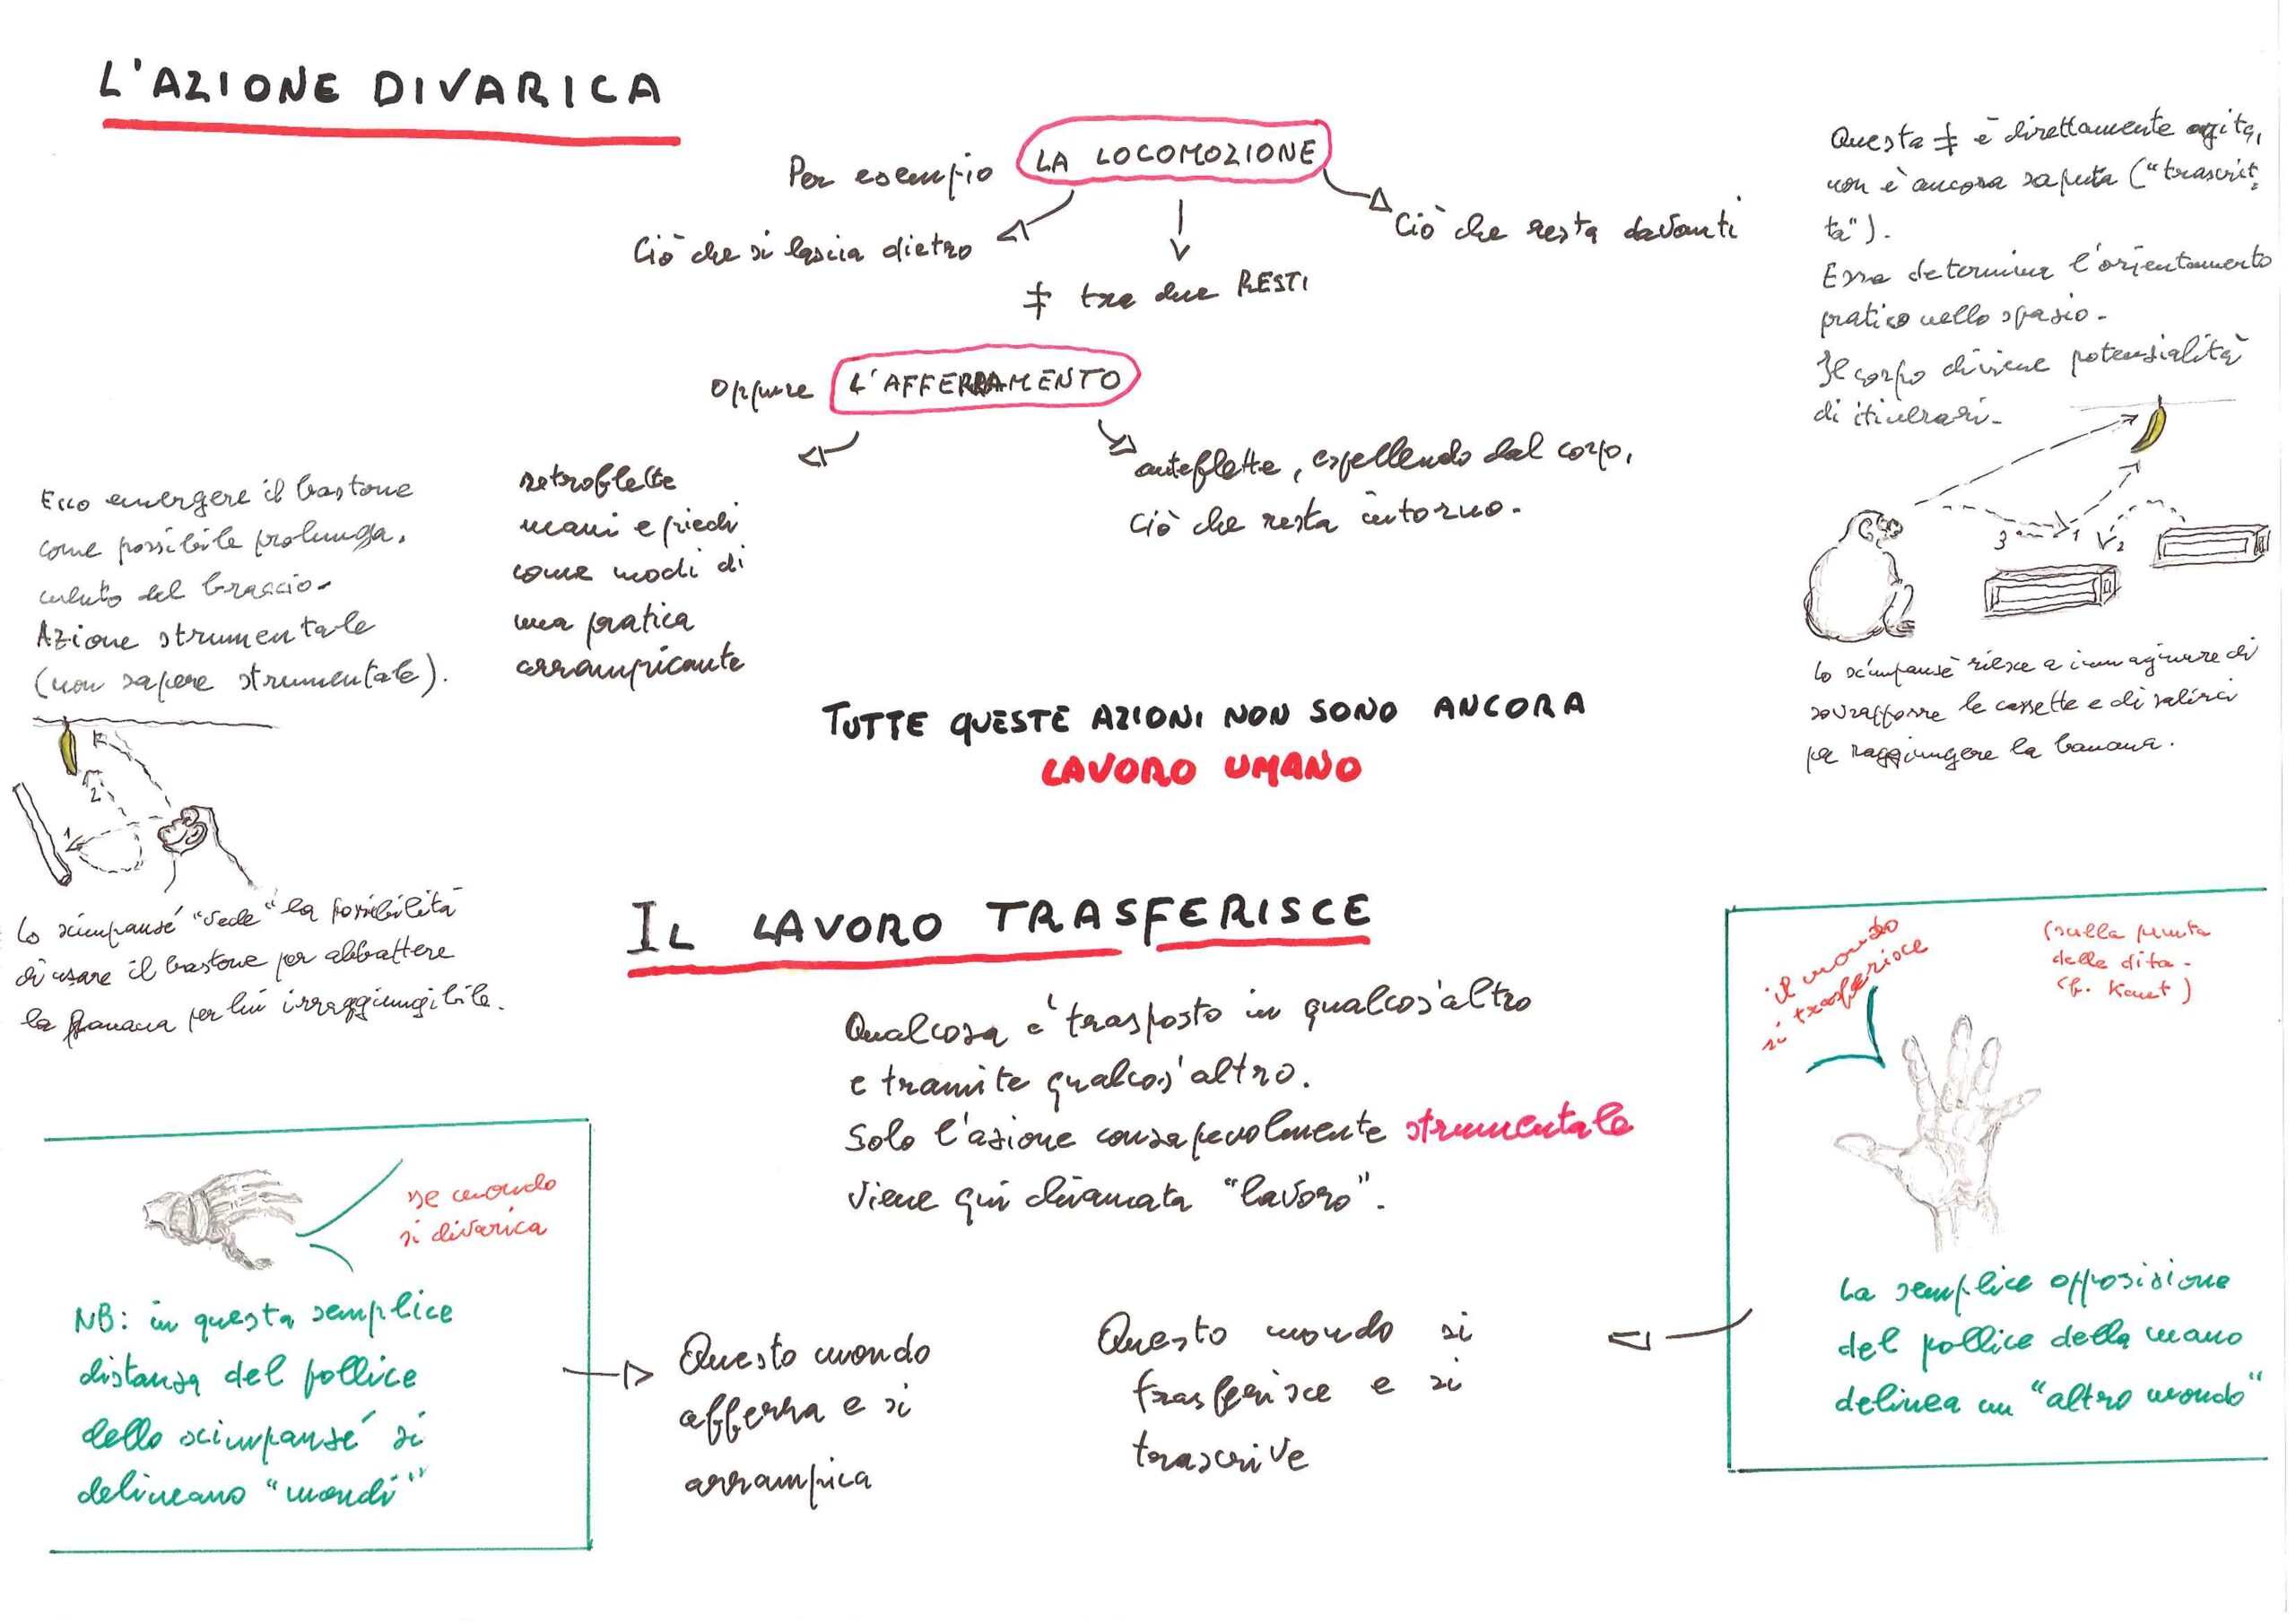 L'AZIONE DIVARICA
Per esempio LA LOCOMOZIONE
Ciò che si lascia dietro
Ciò che resta davanti
‡ tra due RESTI
Questa ‡ è direttamente agita,
non è ancora saputa ("trascrit=
ta").
Essa determina l'orientamento
pratico nello spazio.
Il corpo diviene potenzialità
di itinerari.
3
1
2
Lo scimpanzè riesce a immaginare di
sovrapporre le cassette e di salirci
per raggiungere la banana.
oppure L'AFFERRAMENTO
retroflette
mani e piedi
come modi di
una pratica
arrampicante
anteflette, espellendo dal corpo,
ciò che resta intorno.
Ecco emergere il bastone
come possibile prolunga.
mento del braccio.
Azione strumentale
(non sapere strumentale).
2
1
Lo scimpansé "vede" la possibilità
di usare il bastone per abbattere
la banana per lui irraggiungibile.
TUTTE QUESTE AZIONI NON SONO ANCORA
LAVORO UMANO
IL LAVORO TRASFERISCE
Qualcosa è trasposto in qualcos'altro
e tramite qualcos'altro.
Solo l'azione consapevolmente strumentale
viene qui chiamata "lavoro".
se mondo
si divarica
NB: in questa semplice
distanza del pollice
dello scimpansé si
delineano "mondi"
Questo mondo
afferra e si
arrampica
Questo mondo si
trasferisce e si
trascrive
il mondo
si trasferisce
(sulla punta
delle dita.
Cfr. Kant)
La semplice opposizione
del pollice della mano
delinea un "altro mondo"